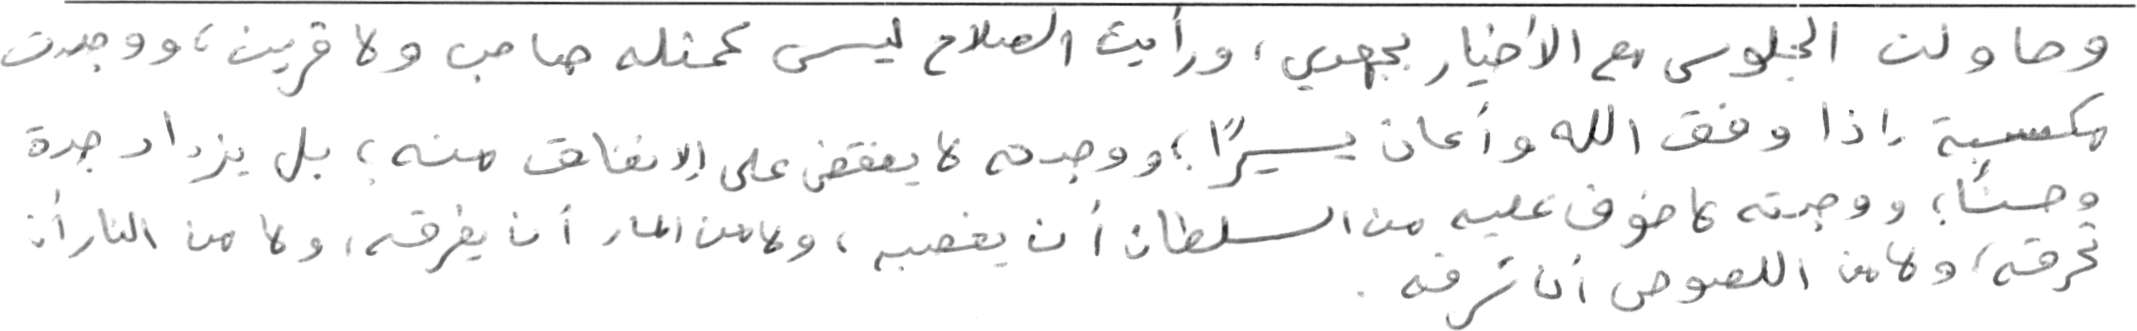 وحاولت الجلوس مع الأخيار بجهدي، ورأيت الصلاح ليس كمثله صاحب ولا قرين، ووجدت
مكسبة إذا وفق الله وأعان يسيرًا؛ ووجدته لا ينقص على الإنفاق منه؛ بل يزداد جدة
وحسنًا؛ ووجدته لا خوف عليه من السلطان أن يغصبه، ولا من الماء أن يغرقه، ولا من النار أن
تحرقه، ولا من اللصوص أن تسرقه.